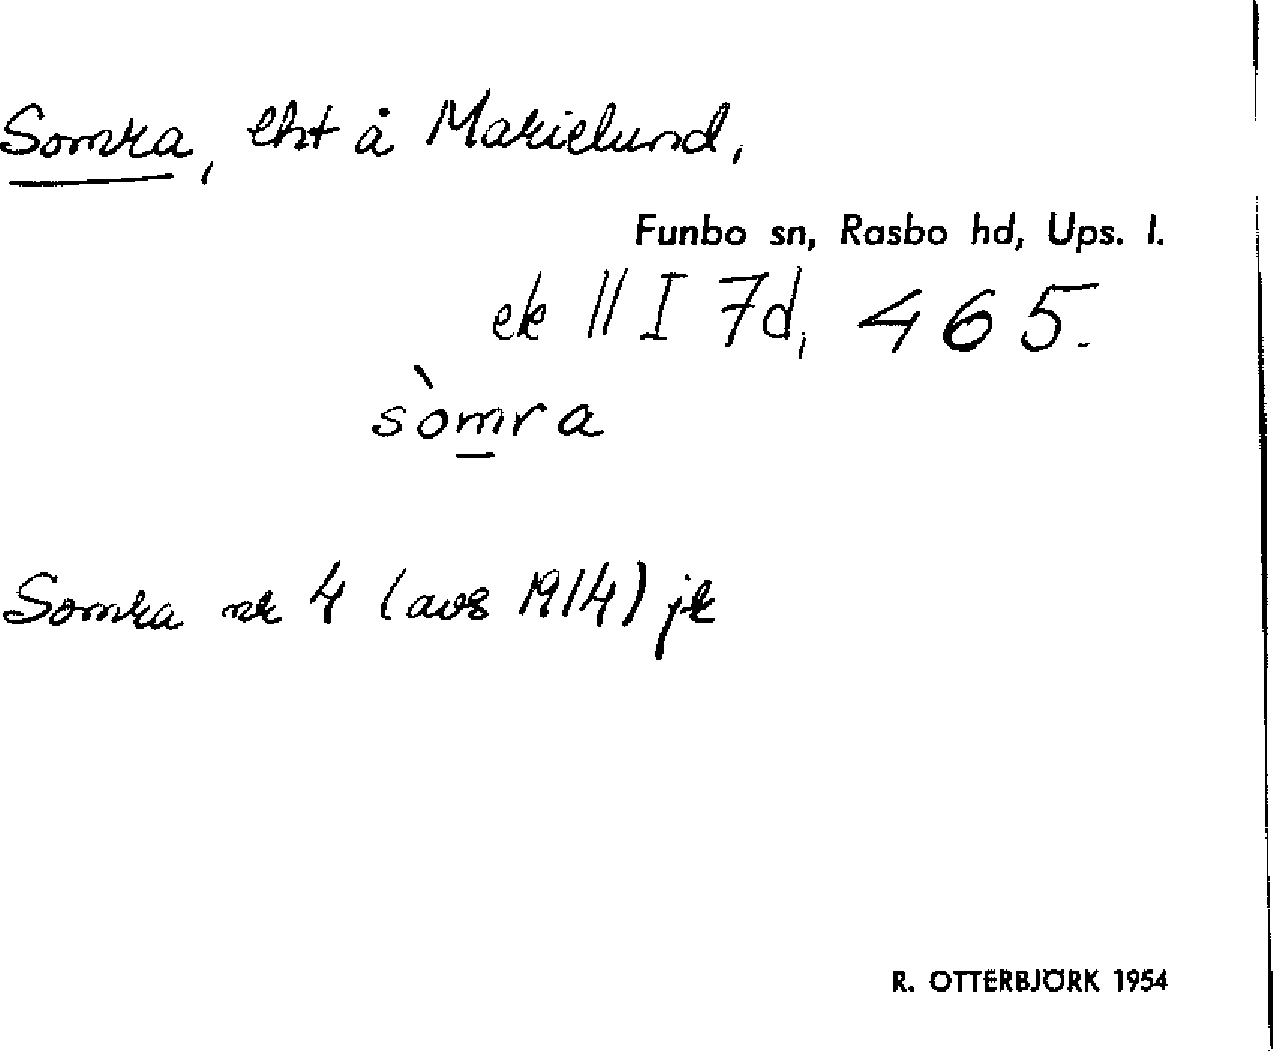 Somra, lht å Marielund,
Funbo sn, Rasbo hd, Ups. l.
ek 11 I 7d, 465.
sòmra
Somra nr 4 (avs 1914) jr
R. OTTERBJÖRK 1954